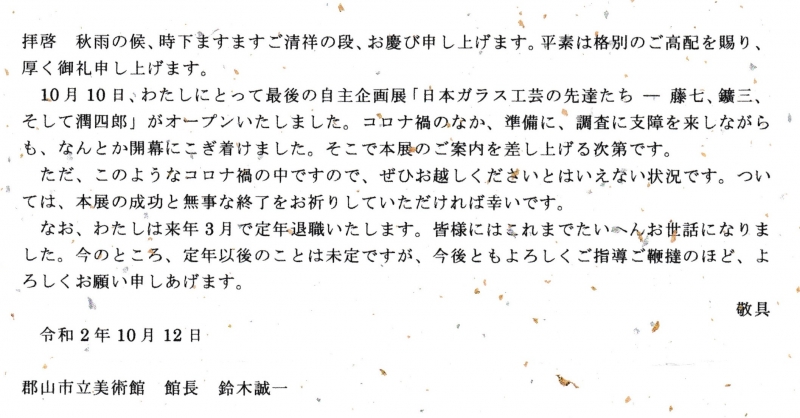 拝啓　秋雨の候、時下ますますご清祥の段、お慶び申し上げます。平素は格別のご高配を賜り、
厚く御礼申し上げます。
　10月10日、わたしにとって最後の自主企画展「日本ガラス工芸の先達たち ― 藤七、鑛三、
そして潤四郎」がオープンいたしました。コロナ禍のなか、準備に、調査に支障を来しながら
も、なんとか開幕にこぎ着けました。そこで本展のご案内を差し上げる次第です。
　ただ、このようなコロナ禍の中ですので、ぜひお越しくださいとはいえない状況です。つい
ては、本展の成功と無事な終了をお祈りしていただければ幸いです。
　なお、わたしは来年3月で定年退職いたします。皆様にはこれまでたいへんお世話になりま
した。今のところ、定年以後のことは未定ですが、今後ともよろしくご指導ご鞭撻のほど、よ
ろしくお願い申しあげます。
敬具
　令和2年10月12日
郡山市立美術館　館長　鈴木誠一